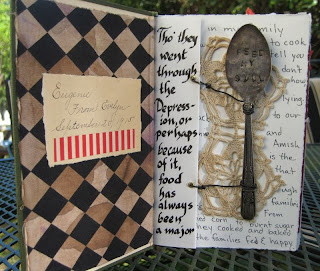 Eugenia
From Evelyn
September 21, 1915
Tho' they
went
through
the
Depres-
sion, or
perhaps
because
of it,
food
has
always
been
a major
in my family
to cook
tell you
don't
how
lying.
to our
and
Amish,
is the
that
through
families
From
corn to burnt sugar
they cooked and baked
the families fed & happy